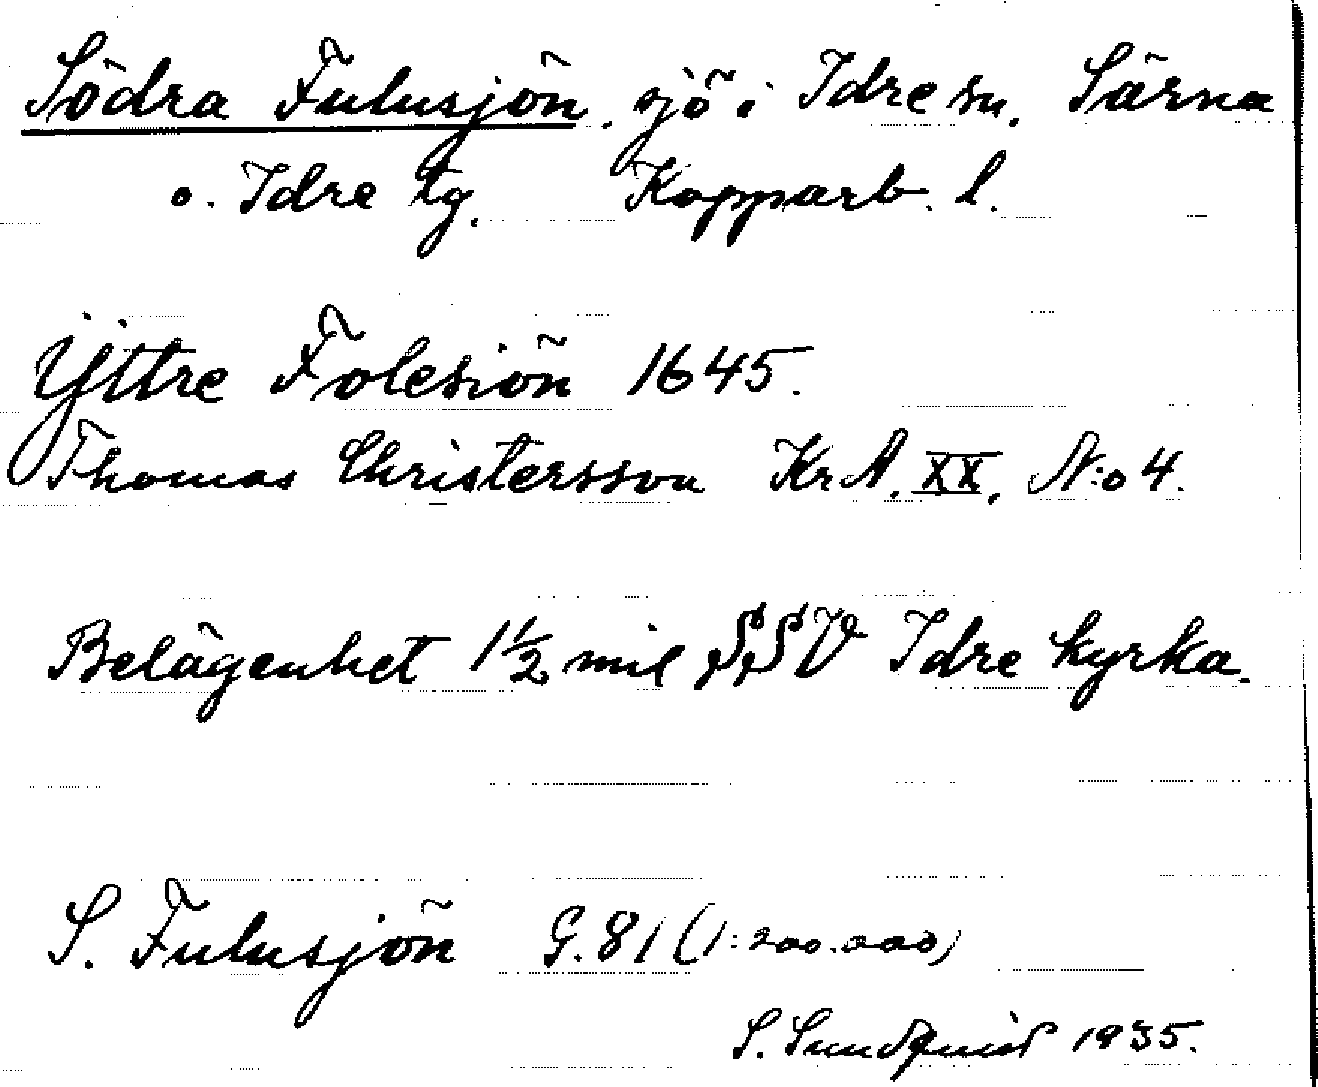 Södra Fulusjön, sjö i Idre sn. Särna
o. Idre tg. Kopparb. l.
Yttre Folesiön 1645.
Thomas Christersson Kr A. XX, N:o 4.
Belägenhet 1½ mil SSV Idre kyrka.
S. Fulusjön G. 81 (1:200.000)
S. Sundquist 1935.